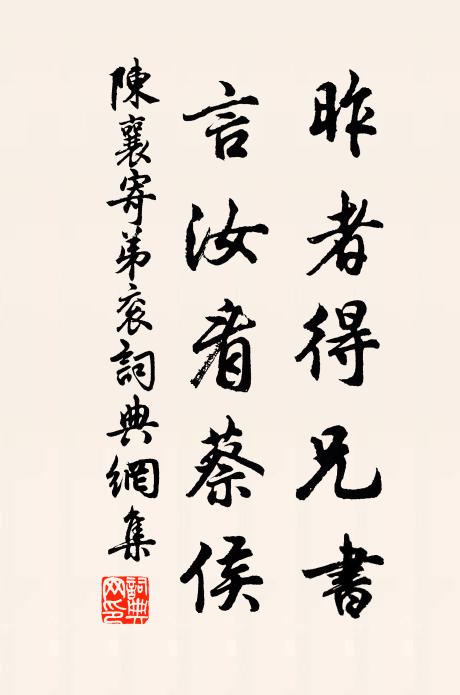 昨者得兄書
言汝看蔡侯
陳襄寄弟袞詞典網集
詞典網印